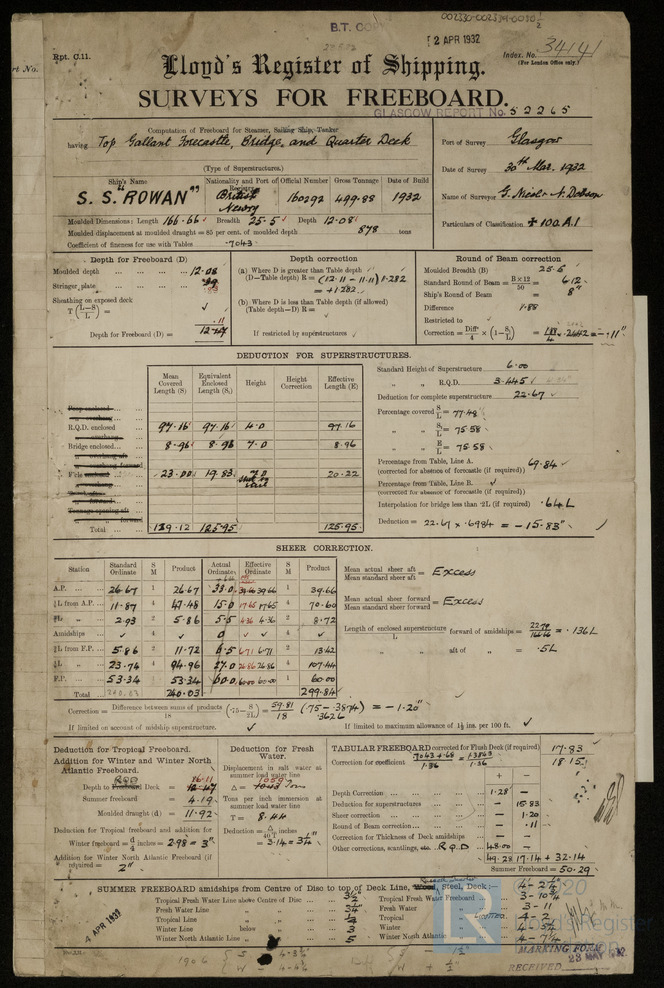 002330-002339-0030½
B.T. COPY
2 APR 1932
Rpt. C.11.
Index. No. 34141
(For London Office only.)
Lloyd's Register of Shipping.
SURVEYS FOR FREEBOARD.
GLASGOW REPORT No. 52265
Computation of Freeboard for Steamer, Sailing Ship, Tanker
having Top Gallant Forecastle, Bridge, and Quarter Deck
(Type of Superstructures.)
Port of Survey Glasgow
Date of Survey 30th Mar. 1932
Name of Surveyor G. Nicol & A. Dobson
Particulars of Classification +100.A.1
Ship's Name Nationality and Port of Registry Official Number Gross Tonnage Date of Build
S.S. "ROWAN" British Newry 160292 499.88 1932
Moulded Dimensions: Length 166.66 Breadth 25.5 Depth 12.08
Moulded displacement at moulded draught = 85 per cent. of moulded depth 878 tons
Coefficient of fineness for use with Tables .7043
Depth for Freeboard (D)
Moulded depth 12.08
Stringer plate
Sheathing on exposed deck
T (L-S/L)
.11
Depth for Freeboard (D) =
Depth correction
(a) Where D is greater than Table depth
(D—Table depth) R = (12.11 - 11.11) 1.282
= +1.282
(b) Where D is less than Table depth (if allowed)
(Table depth—D) R =
If restricted by superstructures
Round of Beam correction
Moulded Breadth (B) 25.5
Standard Round of Beam = B×12/50 = 6.12
Ship's Round of Beam = 8"
Difference 1.88
Restricted to
Correction = Diff/4 × (1 - S/L) = 1.88/4 × .2442 = -.11"
DEDUCTION FOR SUPERSTRUCTURES.
Mean Covered Length (S) Equivalent Enclosed Length (S₁) Height Height Correction Effective Length (E)
R.Q.D. enclosed 97.16 97.16 4.0 97.16
Bridge enclosed 8.96 8.96 7.0 8.96
F'cle 23.00 19.83 7.0 20.22
Total 129.12 125.95 125.95
Standard Height of Superstructure 6.00
" " R.Q.D. 3.445
Deduction for complete superstructure 22.67
Percentage covered S/L = 77.48
" " S₁/L = 75.58
" " E/L = 75.58
Percentage from Table, Line A.
(corrected for absence of forecastle (if required)) 69.84
Percentage from Table, Line B.
(corrected for absence of forecastle (if required))
Interpolation for bridge less than ·2L (if required) .54L
Deduction = 22.67 × .6984 = -15.83"
SHEER CORRECTION.
Station Standard Ordinate S M Product Actual Ordinate Effective Ordinate S M Product
A.P. 26.67 1 26.67 33.0 39.66 1 39.66
¼L from A.P. 11.87 4 47.48 15.0 17.65 4 70.60
⅓L " 2.93 2 5.86 5.5 4.36 2 8.72
Amidships 4 0 4
⅓L from F.P. 5.86 2 11.72 6.5 6.71 2 13.42
¼L " 23.74 4 94.96 27.0 26.86 4 107.44
F.P. 53.34 1 53.34 60.0 60.00 1 60.00
Total 240.03 240.03 299.84
Mean actual sheer aft / Mean standard sheer aft = Excess
Mean actual sheer forward / Mean standard sheer forward = Excess
Length of enclosed superstructure forward of amidships = 22.79/166.66 = .136L
L " aft of " = .5L
Correction = Difference between sums of products/18 (·75 - S/2L) = 59.81/18 (.75 - .3874) = -1.20"
.3626
If limited on account of midship superstructure.
If limited to maximum allowance of 1½ ins. per 100 ft.
Deduction for Tropical Freeboard.
Addition for Winter and Winter North Atlantic Freeboard.
Depth to Deck = 16.11
Summer freeboard = 4.19
Moulded draught (d) = 11.92
Deduction for Tropical freeboard and addition for
Winter freeboard = d/4 inches = 2.98 = 3"
Addition for Winter North Atlantic Freeboard (if required) = 2"
Deduction for Fresh Water.
Displacement in salt water at summer load water line
Δ = 1059 Tons
Tons per inch immersion at summer load water line
T = 8.44
Deduction = Δ/40T inches
= 3.14 = 3¼"
TABULAR FREEBOARD corrected for Flush Deck (if required) 17.83
Correction for coefficient .7043+.68/1.36 = 1.3843/1.36 18.15
+ −
Depth Correction 1.28 —
Deduction for superstructures — 15.83
Sheer correction — 1.20
Round of Beam correction — .11
Correction for Thickness of Deck amidships — —
Other corrections, scantlings, etc. R.Q.D 48.00 —
49.28 17.14 + 32.14
Summer Freeboard = 50.29
SUMMER FREEBOARD amidships from Centre of Disc to top of Deck Line, Wood, Steel, Deck:— 4'- 2¼"
Tropical Fresh Water Line above Centre of Disc
Fresh Water Line " " 3¼
Tropical Line " "
Winter Line below " 3
Winter North Atlantic Line " " 5
Tropical Fresh Water Freeboard
Fresh Water " 3 - 11
Tropical "
Winter "
Winter North Atlantic "
4 APR 1932
© 2020
Lloyd's Register
MARKING FORM
RECEIVED 23 MAY 1932